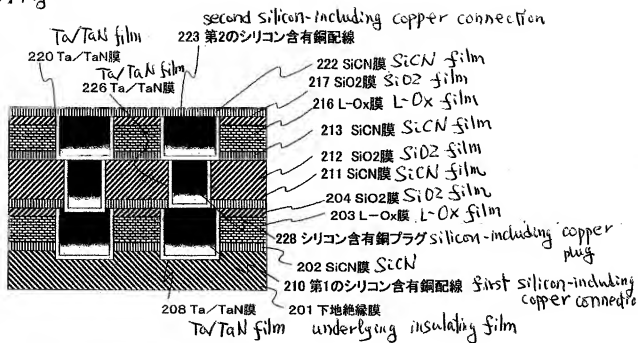 second silicon-including copper connection
Ta/TaN film
223 第2のシリコン含有銅配線
220 Ta／TaN膜
222 SiCN膜 SiCN film
Ta/TaN film
217 SiO2膜 SiO2 film
226 Ta／TaN膜
216 L-Ox膜 L-Ox film
213 SiCN膜 SiCN film
212 SiO2膜 SiO2 film
211 SiCN膜 SiCN film
204 SiO2膜 SiO2 film
203 L-Ox膜 L-Ox film
228 シリコン含有銅プラグ silicon-including copper
plug
202 SiCN膜 SiCN
210 第1のシリコン含有銅配線 first silicon-including
copper connectio
208 Ta／TaN膜
201 下地絶縁膜
Ta/TaN film
underlying insulating film